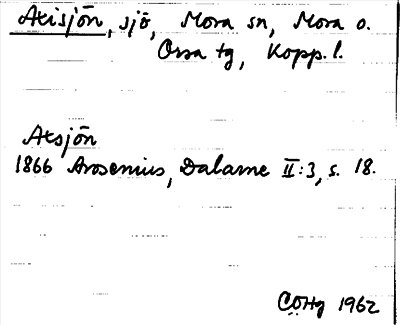 Axisjön, sjö, Mora sn, Mora o.
Orsa tg, Kopp. l.
Axsjön
1866 Arosenius, Dalarne II:3, s. 18.
CÖHg 1962